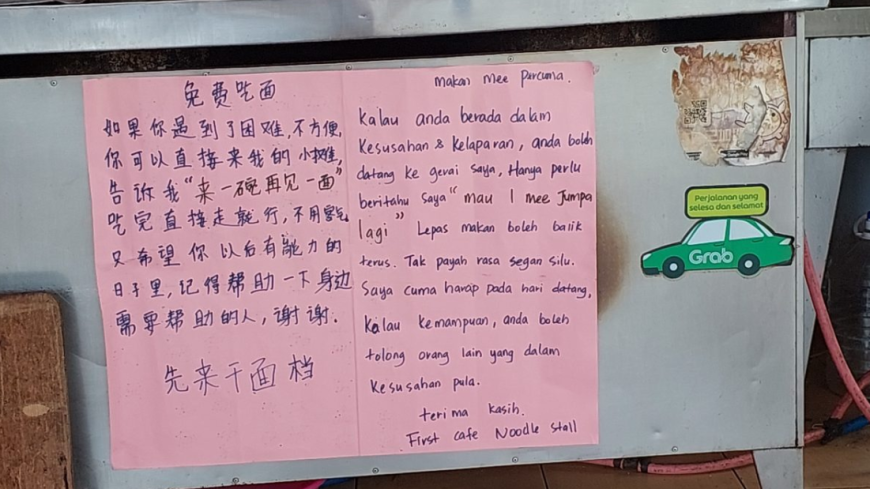 免费吃面
如果你遇到了困难,不方便,
你可以直接来我的小摊,
告诉我“来一碗再见一面”
吃完直接走就行,不用客气
又希望你以后有能力的
日子里,记得帮助一下身边
需要帮助的人,谢谢.
先来干面档
makan mee percuma.
Kalau anda berada dalam
Kesusahan & Kelaparan, anda boleh
datang ke gerai saya, Hanya perlu
beritahu saya “mau 1 mee Jumpa
lagi” Lepas makan boleh balik
terus. Tak payah rasa segan silu.
Saya cuma harap pada hari datang,
Kalau kemampuan, anda boleh
tolong orang lain yang dalam
Kesusahan pula.
terima kasih.
First cafe Noodle stall
Perjalanan yang
selesa dan selamat
Grab